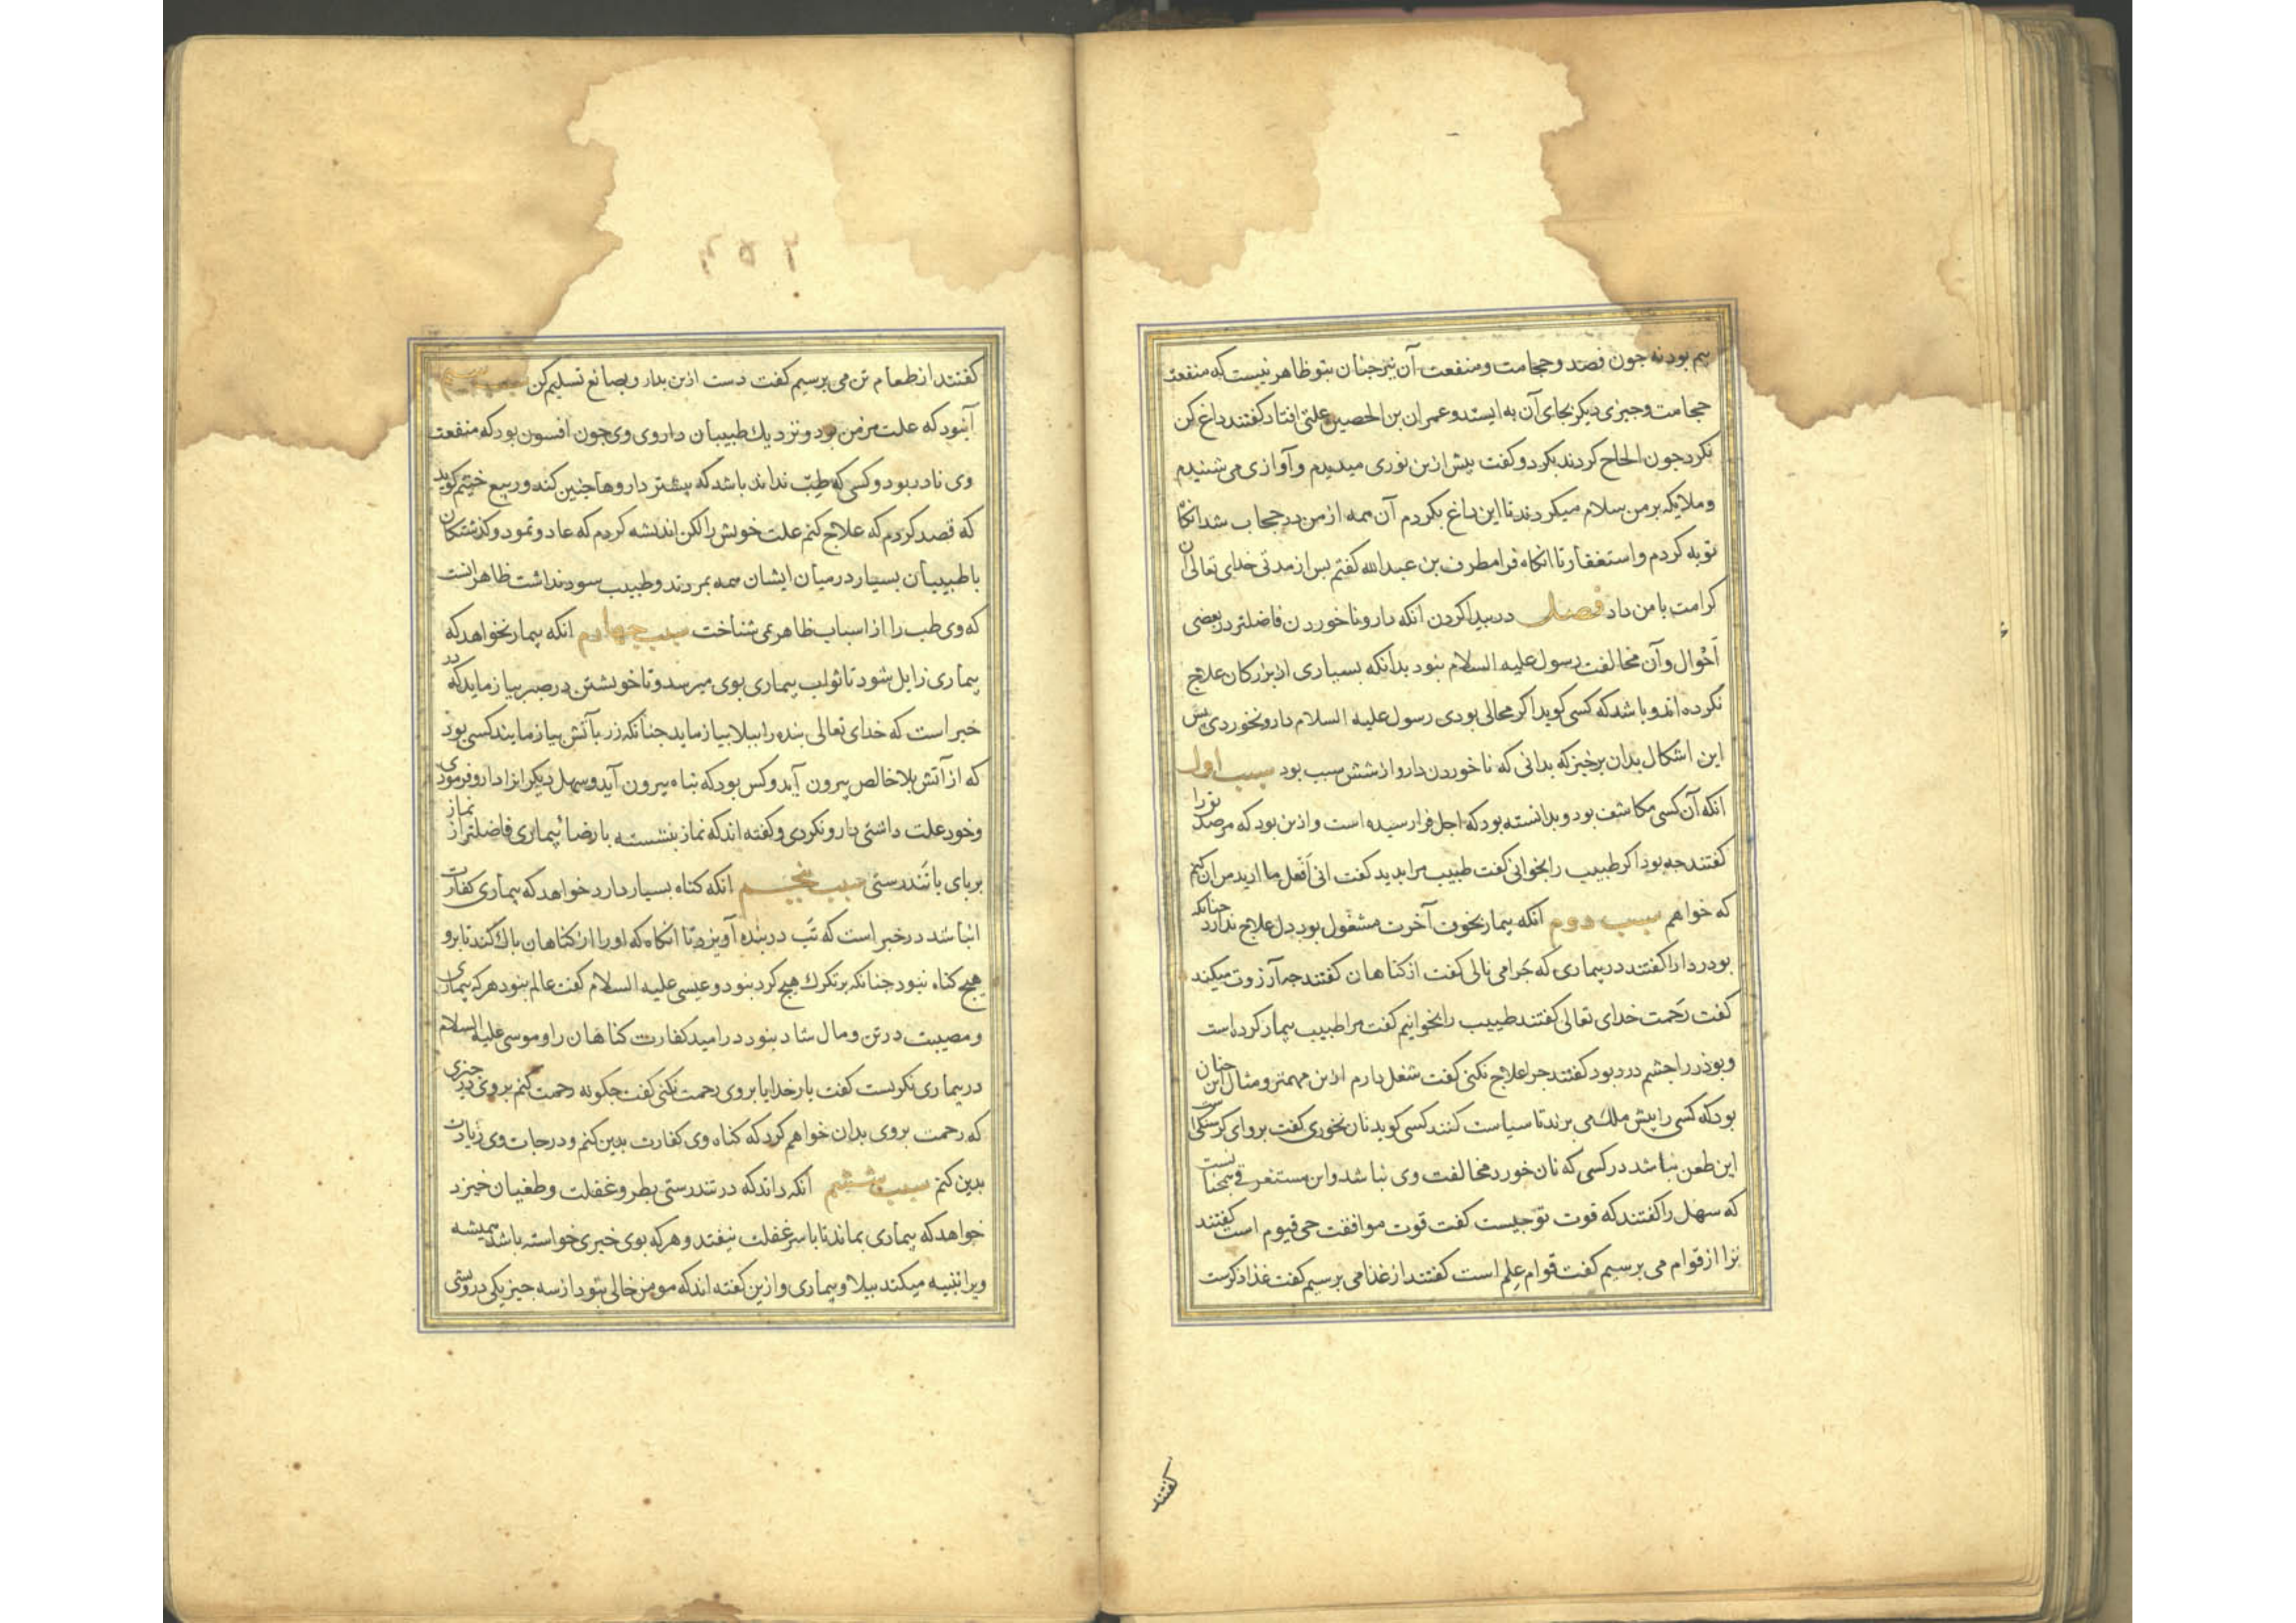 بیم بود نه جون فصد و حجامت و منفعت آن نیز جنان بتو ظاهر نیست که منفعت
حجامت و جیزی دیکر بجای آن به ایستد و عمران بن الحصین علتی افتاد کفتند داغ کن
نکرد جون الحاح کردند بکرد و کفت بیش ازین نوری میدیدم و آوازی می شنیدم
و ملایکه بر من سلام میکردند تا این داغ بکردم آن همه از من در حجاب شد انکاه
توبه کردم و استغفار تا انکاه فرا مطرف بن عبدالله کفتم بس از مدتی خدای تعالی آن
کرامت با من داد فصل در بیدا کردن انکه دارو ناخوردن فاضلتر در بعضی
احوال و آن مخالفت رسول علیه السلام نبود بدانکه بسیاری از بزرکان علاج
نکرده اند و باشد که کسی کوید اکر محالی بودی رسول علیه السلام دارو نخوردی بس
این اشکال بدان برخیزد که بدانی که ناخوردن دارو از شش سبب بود سبب اول
انکه آن کسی مکاشف بود و بدانسته بود که اجل فرا رسیده است و ازین بود که مر صدیق را
کفتند جه بود اکر طبیب را بخوانی کفت طبیب مرا بدید کفت انی افعل ما ارید من آن کنم
که خواهم سبب دوم انکه بیمار بخوف آخرت مشغول بود دل علاج ندارد جنانکه
بودردا را کفتند در بیماری که جرا می نالی کفت از کناهان کفتند جه آرزوت میکند
کفت رحمت خدای تعالی کفتند طبیب را بخوانیم کفت مرا طبیب بیمار کرده است
و بوذر را جشم درد بود کفتند جرا علاج نکنی کفت شغل دارم ازین مهمتر و مثال این جنان
بود که کسی را بیش ملک می برند تا سیاست کنند کسی کوید نان نخوری کفت بروای کرسنکی
این طعن نباشد در کسی که نان خورد و مخالفت وی نباشد و این مستغرقی همجنانست
که سهل را کفتند که قوت توجیست کفت قوت موافقت حی قیوم است کفتند
ترا از قوام می برسیم کفت قوام علم است کفتند از غذا می برسیم کفت غذا ذکرست
کفتند
کفتند از طعام تن می برسیم کفت دست ازین بدار و بصانع تسلیم کن سبب سیم
آن بود که علت مزمن بود و نزدیک طبیبان داروی وی جون افسون بود که منفعت
وی نادر بود و کسی که طب نداند باشد که بیشتر داروها جنین کند و ربیع خثیم کوید
که قصد کردم که علاج کنم علت خویش را لکن اندیشه کردم که عاد و ثمود و کذشتکان
با طبیبان بسیار در میان ایشان همه بمردند و طبیب سود نداشت ظاهر انست
که وی طب را از اسباب ظاهر می شناخت سبب جهارم انکه بیمار نخواهد که
بیماری زایل شود تا ثواب بیماری بوی میرسد و تا خویشتن در صبر بیازماید که در
خبر است که خدای تعالی بنده را ببلا بیازماید جنانکه زر بآتش بیازمایند کسی بود
که از آتش بلا خالص بیرون آید و کس بود که تباه بیرون آید و سهل دیکرانرا دارو فرمودی
و خود علت داشتی دارو نکردی و کفته اند که نماز نشسته با رضا بیماری فاضلتر از نماز
بربای با تندرستی سبب بنجم انکه کناه بسیار دارد خواهد که بیماری کفارت
انباشد در خبر است که تب در بنده آویزد تا انکاه که او را از کناهان باک کند تا برو
هیج کناه نبود جنانکه بر تکرک هیج کرد نبود و عیسی علیه السلام کفت عالم نبود هر که بیماری
و مصیبت در تن و مال شاد نبود در امید کفارت کناهان را و موسی علیه السلام
در بیماری نکریست کفت بار خدایا بروی رحمت نکنی کفت جکونه رحمت کنم بروی در جیزی
که رحمت بروی بدان خواهم کرد که کناه وی کفارت بدین کنم و درجات وی زیادت
بدین کنم سبب ششم انکه داند که در تندرستی بطر و غفلت و طغیان خیزد
خواهد که بیماری بماند تا با سر غفلت نیفتد و هر که بوی خیری خواسته باشد همیشه
ویرا تنبیه میکند ببلا و بیماری و ازین کفته اند که مومن خالی نبود از سه جیز یکی درویشی